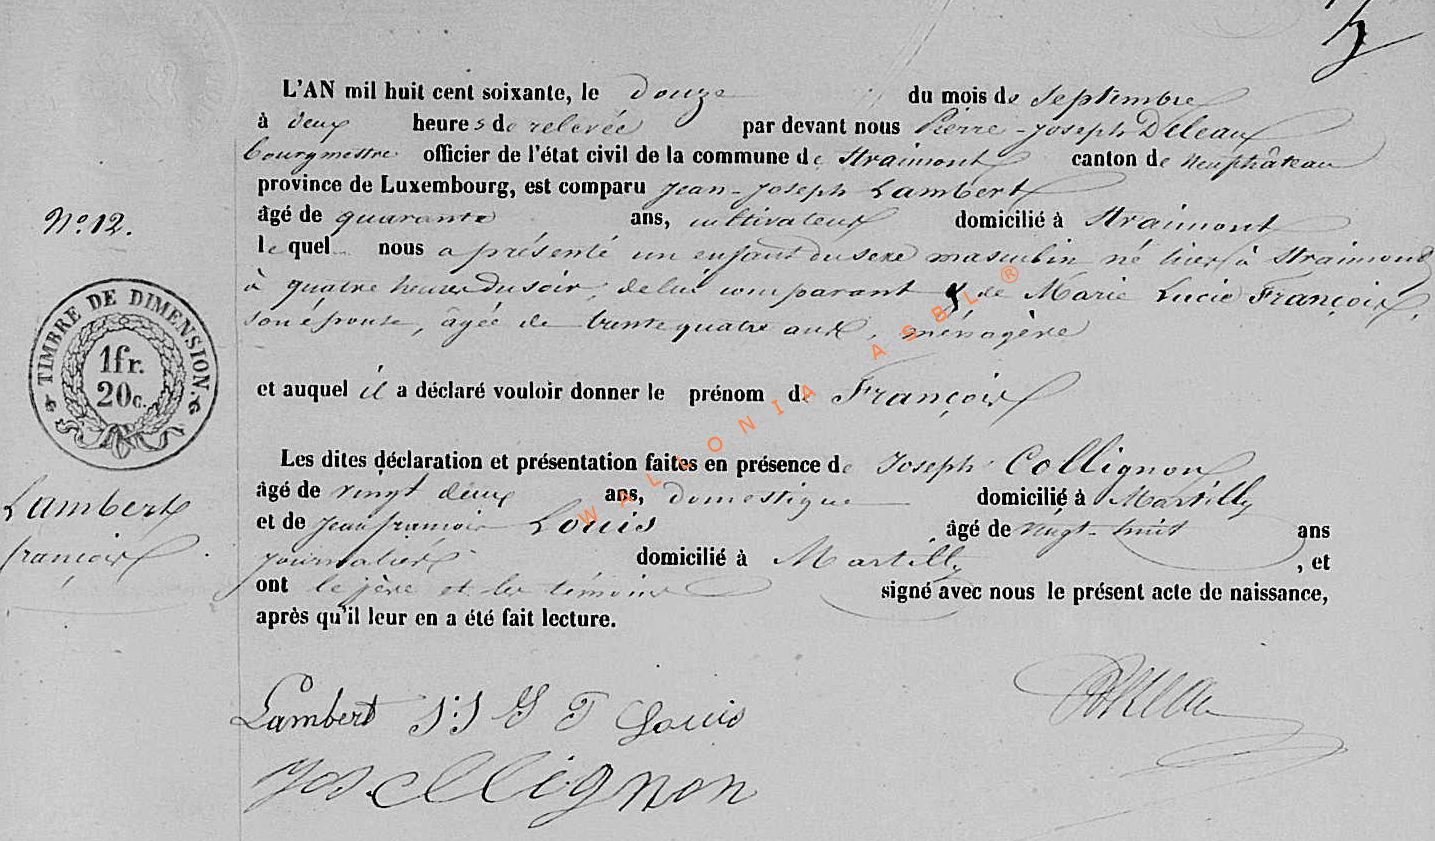 L'AN mil huit cent soixante, le douze du mois de Septembre
à deux heures de relevée par devant nous Pierre-Joseph Déleau
bourgmestre officier de l'état civil de la commune de Straimont canton de Neufchâteau
province de Luxembourg, est comparu Jean-Joseph Lambert
âgé de quarante ans, cultivateur domicilié à Straimont
le quel nous a présenté un enfant du sexe masculin né hier à Straimont
à quatre heures du soir, de lui comparant & de Marie Lucie François,
son épouse, âgée de trente quatre ans, ménagère
et auquel il a déclaré vouloir donner le prénom de François
Les dites déclaration et présentation faites en présence de Joseph Collignon
âgé de vingt deux ans, domestique domicilié à Martilly
et de Jean françois Louis âgé de vingt-huit ans
journalier domicilié à Martilly, et
ont le père et les témoins signé avec nous le présent acte de naissance,
après qu'il leur en a été fait lecture.
Nº 12.
TIMBRE DE DIMENSION. G G
1fr.
20c.
Lambert
françois
Lambert J:J J F Louis
Jos. Collignon
Déleau
WALLONIA ASBL ®